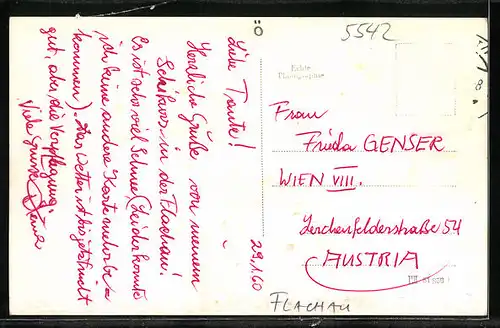 5542
Liebe Tante!
Herzliche Grüße von meinem
Schikurs in der Flachau!
Es ist sehr viel Schnee (Leider konnte
ich keine andere Karte mehr be-
kommen). Das Wetter ist bis jetzt nicht
gut, aber die Verpflegung.
Viele Grüsse
29.1.60
Echte
Photographie
Frau
Frieda GENSER
WIEN VIII.
Lerchenfelderstraße 54
AUSTRIA
FLACHAU